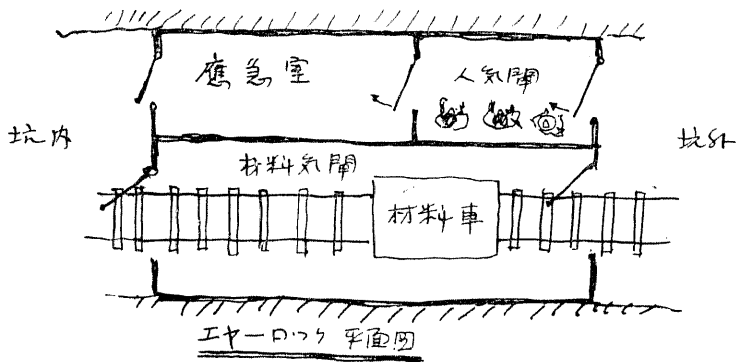 應急室
人気閘
坑内
坑外
材料気閘
材料車
エヤーロック 平面図